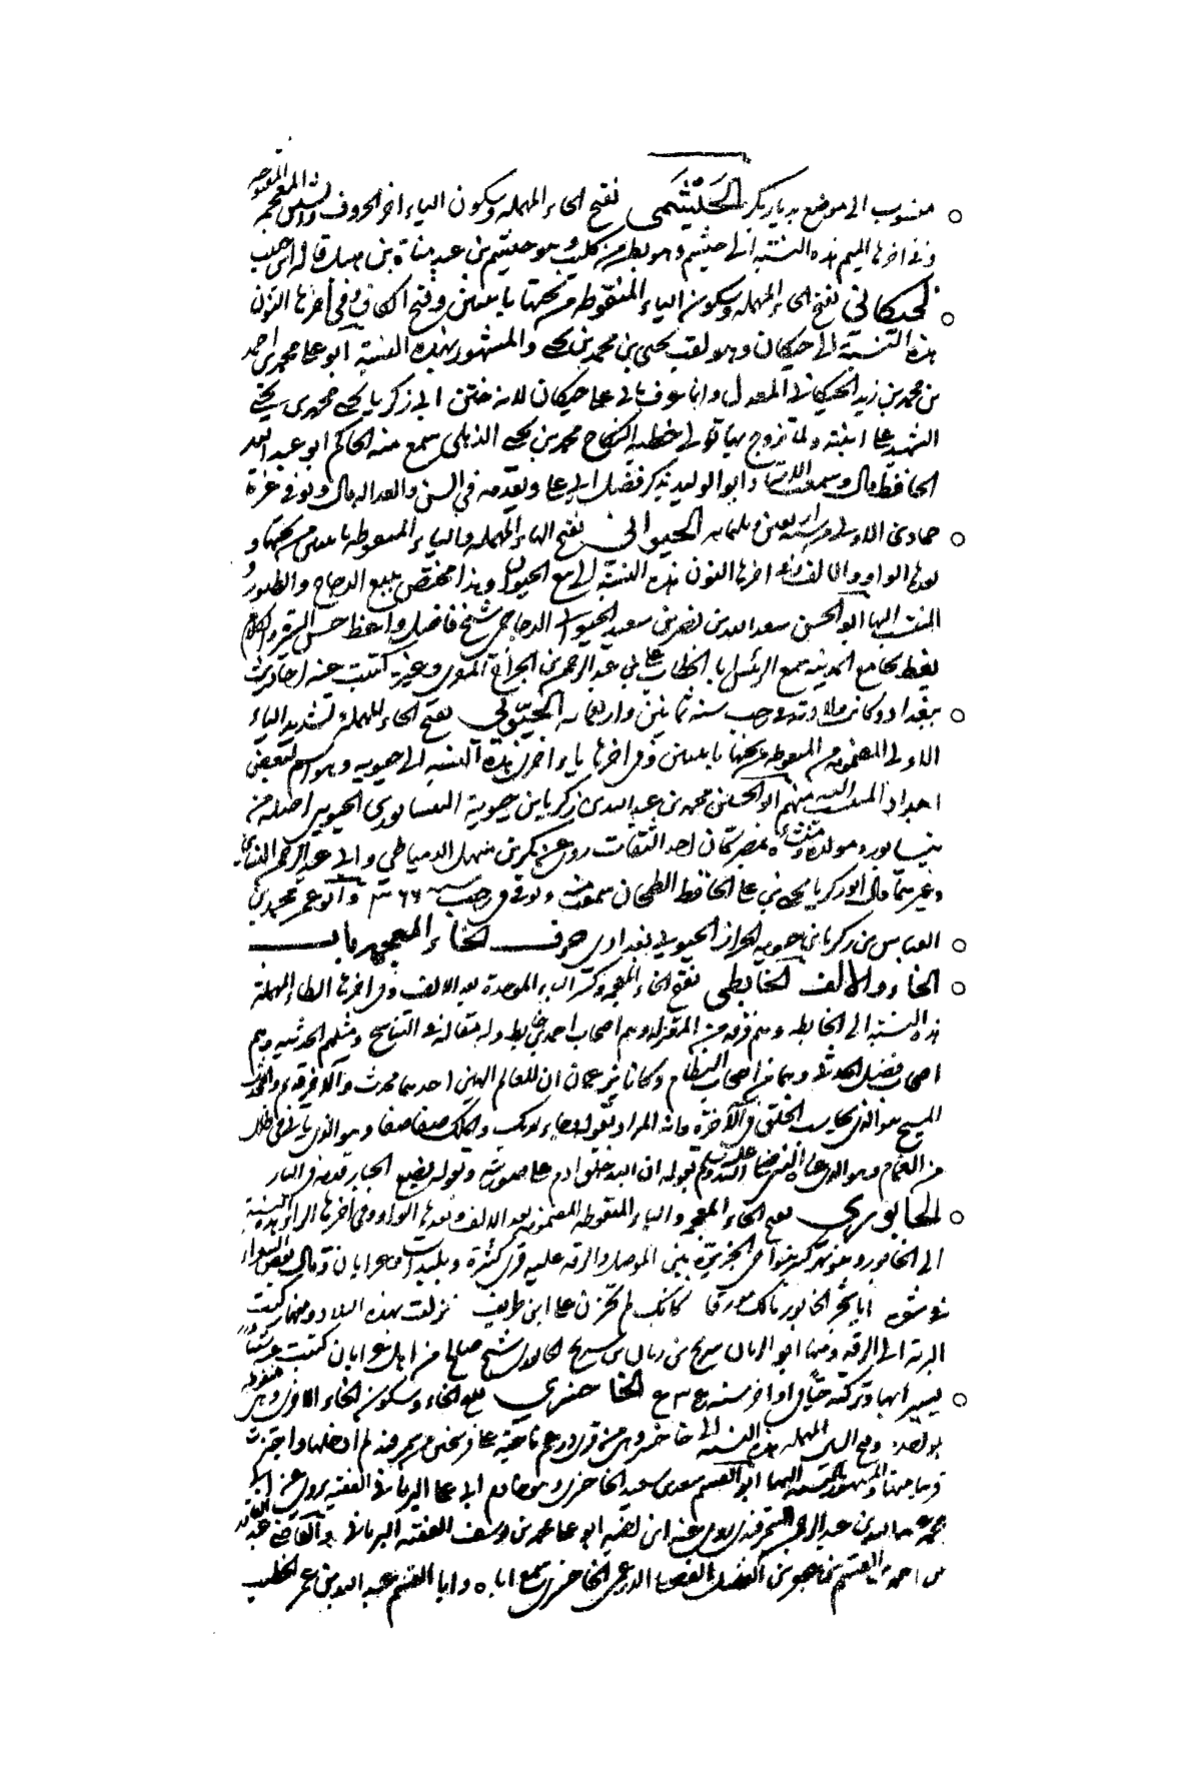 منسوب الى موضع بديار بكر الحَيْشَمي بفتح الحاء المهملة وسكون الياء اخر الحروف والشين المعجمة المفتوحة
وفي اخرها الميم هذه النسبة الى حيشم وهو بطن من كلب وهو حيشم بن عبد مناة بن هبل قاله ابن حبيب
الحيكاني بفتح الحاء المهملة وسكون الياء المنقوطة من تحتها باثنتين وفتح الكاف وفي اخرها النون
هذه النسبة الى حيكان وهو لقب يحيى بن محمد بن يحيى والمشهور بهذه النسبة ابو علي محمد بن احمد
بن محمد بن زيد الحيكاني المعدل وانما عرف بابي علي حيكان لانه ختن ابي زكريا يحيى بن محمد بن يحيى
الشهيد على ابنته ولما تزوج بها تولى خطبة النكاح محمد بن يحيى الذهلي سمع منه الحاكم ابو عبد الله
الحافظ قال وسمعت وابو الوليد يذكر فضل ابي علي وتقدمه في السن والعدالة قال وتوفي غرة
جمادى الاولى من سنة اربعين وثلثمائة الحيواني بفتح الحاء المهملة والياء المنقوطة باثنتين من تحتها و
بعدها الواو والالف وفي اخرها النون هذه النسبة الى بيع الحيوان وهذا مختص ببيع الدجاج والطيور و
المنتسب اليها ابو الحسن سعد الله بن نصر بن سعيد الحيواني الدجاجي شيخ فاضل واعظ حسن السيرة والكلام
يعظ بجامع المدينة سمع الرئيس ابا الخطاب علي بن عبد الرحمن بن الجراح المقرئ وغيره كتبت عنه احاديث
ببغداد وكانت ولادته في رجب سنة ثمانين واربعمائة الحيّويي بفتح الحاء المهملة وتشديد الياء
الاولى المضمومة المنقوطة من تحتها باثنتين وفي اخرها ياء اخرى هذه النسبة الى حيويه وهو اسم لبعض
اجداد المنتسب اليه منهم ابو الحسن محمد بن عبد الله بن زكريا بن حيوية النيسابوري الحيويي اصله من
نيسابور ومولده ومنشؤه بمصر كان احد الثقات روى عن بكر بن سهل الدمياطي وابي عبد الرحمن النسائي
وغيرهما قال ابو زكريا يحيى بن علي الحافظ الطحان سمعت منه وتوفي في رجب سنة ٣٦٦ وابو عمر محمد بن
العباس بن زكريا بن حيويه الخزاز الحيويي بغدادي حرف الخاء المعجمة باب
الخاء والالف الخابطي بفتح الخاء المعجمة وكسر الباء الموحدة بعد الالف وفي اخرها الطاء المهملة
هذه النسبة الى الخابطية وهم فرقة من المعتزلة وهم اصحاب احمد بن خابط وله مقالة في التناسخ ومثلهم الحدثية وهم
اصحاب فضل الحدثي وهما من اصحاب النظام وكانا يزعمان ان للعالم الهين احدهما محدث والآخر قديم والمحدث
المسيح هو الذي يحاسب الخلق في الآخرة وانه المراد بقوله وجاء ربك والملك صفا صفا وهو الذي يأتي في ظلل
من الغمام وهو الذي عناه النبي صلى الله عليه وسلم بقوله ان الله خلق ادم على صورته وبقوله يضع الجبار قدمه في النار
الخابوري بفتح الخاء المعجمة والباء المنقوطة المضمومة بعد الالف وبعدها الواو وفي اخرها الراء هذه النسبة
الى الخابور وهو نهر كبير بنواحي الجزيرة بين الموصل والرقة عليه قرى كثيرة وبليدات منها عرابان وقال بعض الشعراء
في شعره ايا شجر الخابور مالك مورقا كانك لم تحزن على ابن طريف نزلت بهذه البلاد ومنها ركبت
البرية الى الرقة ومنها ابو الريان سريح بن ريان بن سريح الخابوري شيخ صالح من اهل عرابان كتبت عنه شيئا
يسيرا بها وتركته حيا في اواخر سنة الخاخسري بفتح الخاء وسكون الخاء الاخرى منقوطة
بواحدة وفتح السين المهملة هذه النسبة الى خاخسر وهي من قرى درغم ناحية على فرسخين من سمرقند لم ادخلها واجتزت
قريبا منها والمشهور بالنسبة اليها ابو القسم سعد بن سعيد الخاخسري وهو خادم ابي علي اليوناني الفقيه يروي عن ابي
محمد عبد الله بن عبد الرحمن السمرقندي روى عنه ابن بنته ابو علي محمد بن يوسف الفقيه اليوناني والقاضي عبد القادر
بن احمد بن القسم بن محمود بن الفضل القصار الدرغمي الخاخسري سمع اباه وابا القسم عبد الله بن عمر الخطيب